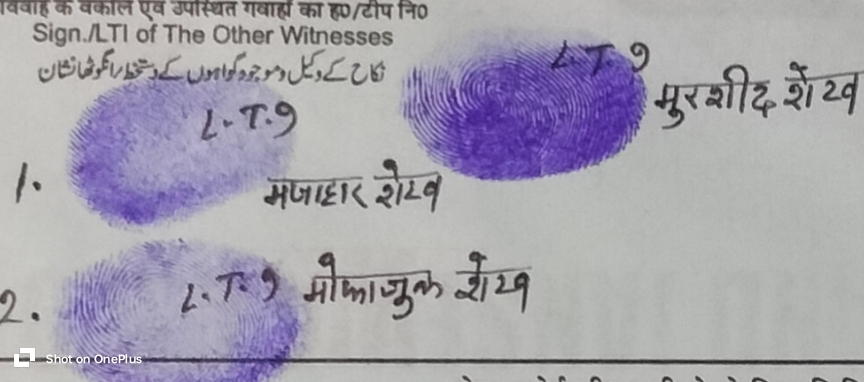 विवाह के वकील एवं उपस्थित गवाहों का ह०/टीप नि०
Sign./LTI of The Other Witnesses
نکاح کے وکیل و موجود گواہوں کے دستخط/انگوٹھا نشان
L.T.9 मुरशीद शेख
1. L.T.9 मजाहार शेख
2. L.T.9 मोफाजुल शेख
Shot on OnePlus